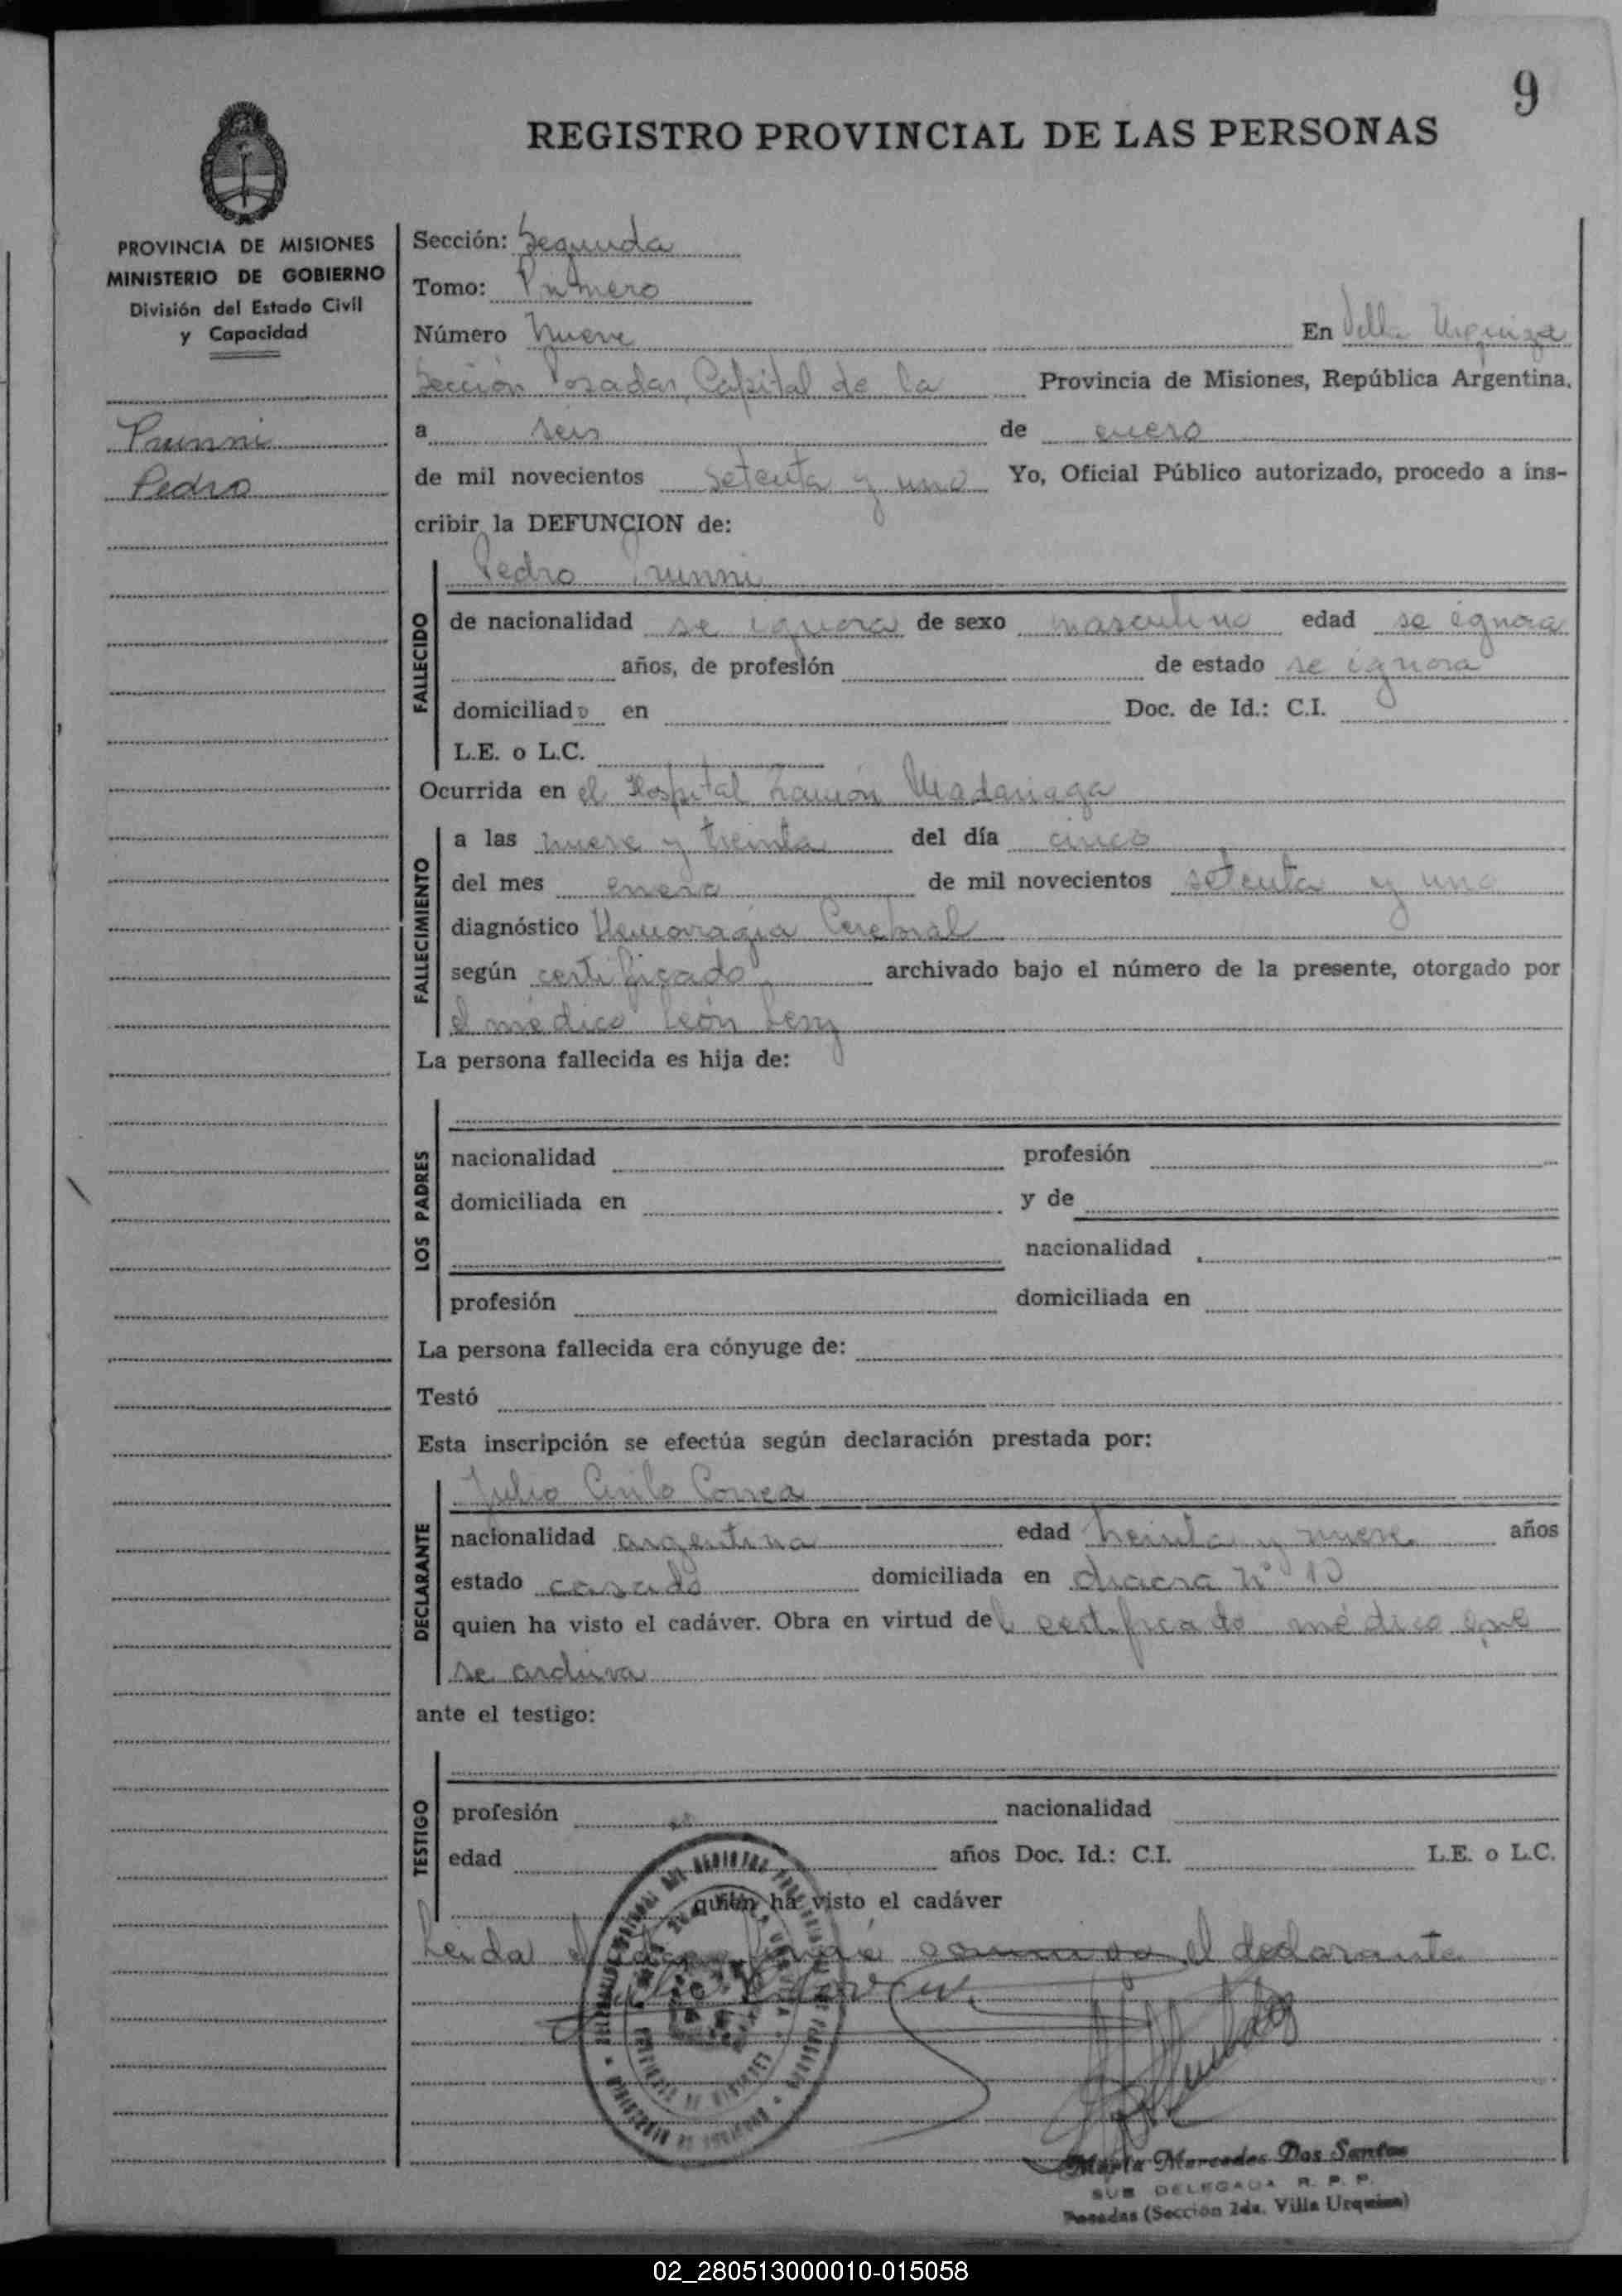 9
REGISTRO PROVINCIAL DE LAS PERSONAS
PROVINCIA DE MISIONES
MINISTERIO DE GOBIERNO
División del Estado Civil
y Capacidad
Prunni
Pedro
Sección: Segunda
Tomo: Primero
Número Nueve En Villa Urquiza
Sección Posadas, Capital de la Provincia de Misiones, República Argentina,
a seis de enero
de mil novecientos setenta y uno Yo, Oficial Público autorizado, procedo a ins-
cribir la DEFUNCION de:
Pedro Prunni
FALLECIDO
de nacionalidad se ignora de sexo masculino edad se ignora
años, de profesión de estado se ignora
domiciliado en Doc. de Id.: C.I.
L.E. o L.C.
Ocurrida en el Hospital Ramón Madariaga
FALLECIMIENTO
a las nueve y treinta del día cinco
del mes enero de mil novecientos setenta y uno
diagnóstico Hemorragia Cerebral
según certificado archivado bajo el número de la presente, otorgado por
el médico León
La persona fallecida es hija de:
LOS PADRES
nacionalidad profesión
domiciliada en y de
nacionalidad
profesión domiciliada en
La persona fallecida era cónyuge de:
Testó
Esta inscripción se efectúa según declaración prestada por:
Julio Cirilo Correa
DECLARANTE
nacionalidad argentina edad treinta y nueve años
estado casado domiciliada en chacra nº 10
quien ha visto el cadáver. Obra en virtud del certificado médico que
se archiva
ante el testigo:
TESTIGO
profesión nacionalidad
edad años Doc. Id.: C.I. L.E. o L.C.
quien ha visto el cadáver
Leida el acta firmó conmigo el declarante
Marta Mercedes Dos Santos
SUB DELEGADA R. P. P.
Posadas (Sección 2da. Villa Urquiza)
02_280513000010-015058